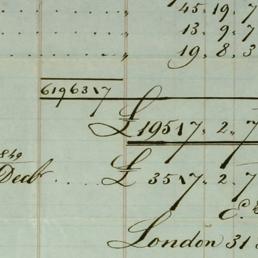 45. 19. 7
13. 9. 7
19. 8. 3
619637
£ 19517. 2. 7
1849
£ 3517. 2. 7
London 31